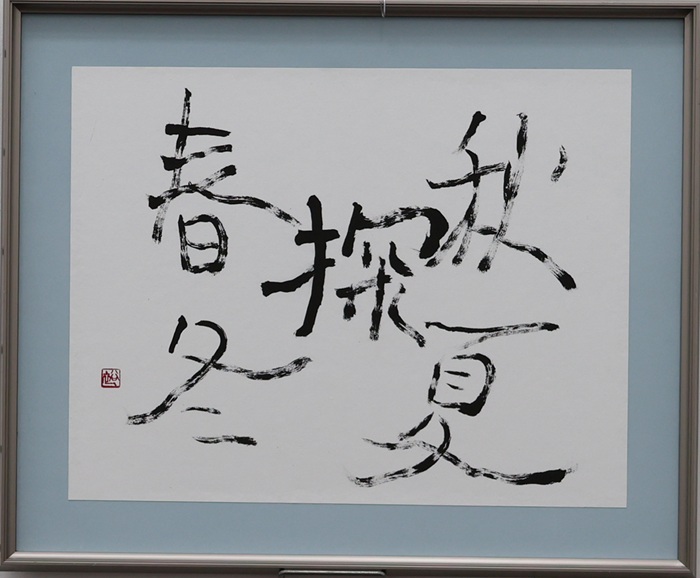 秋夏
探
春冬